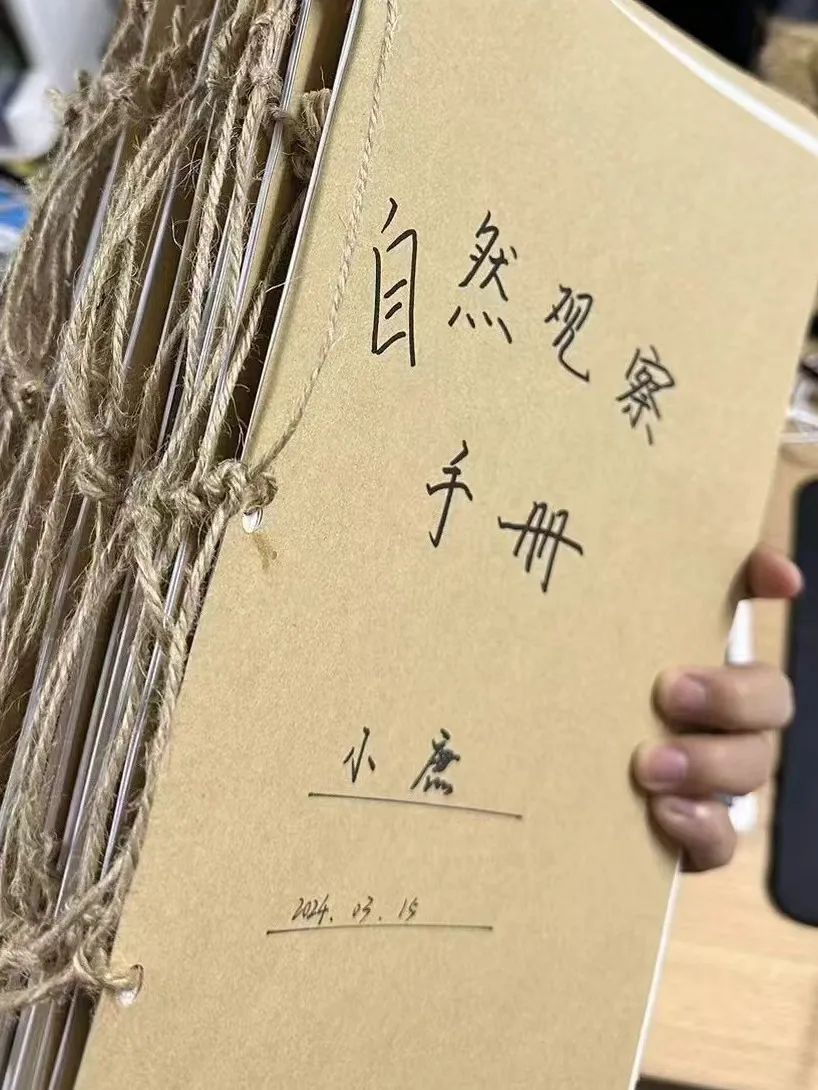 自然观察
手册
小庶
2024.03.15